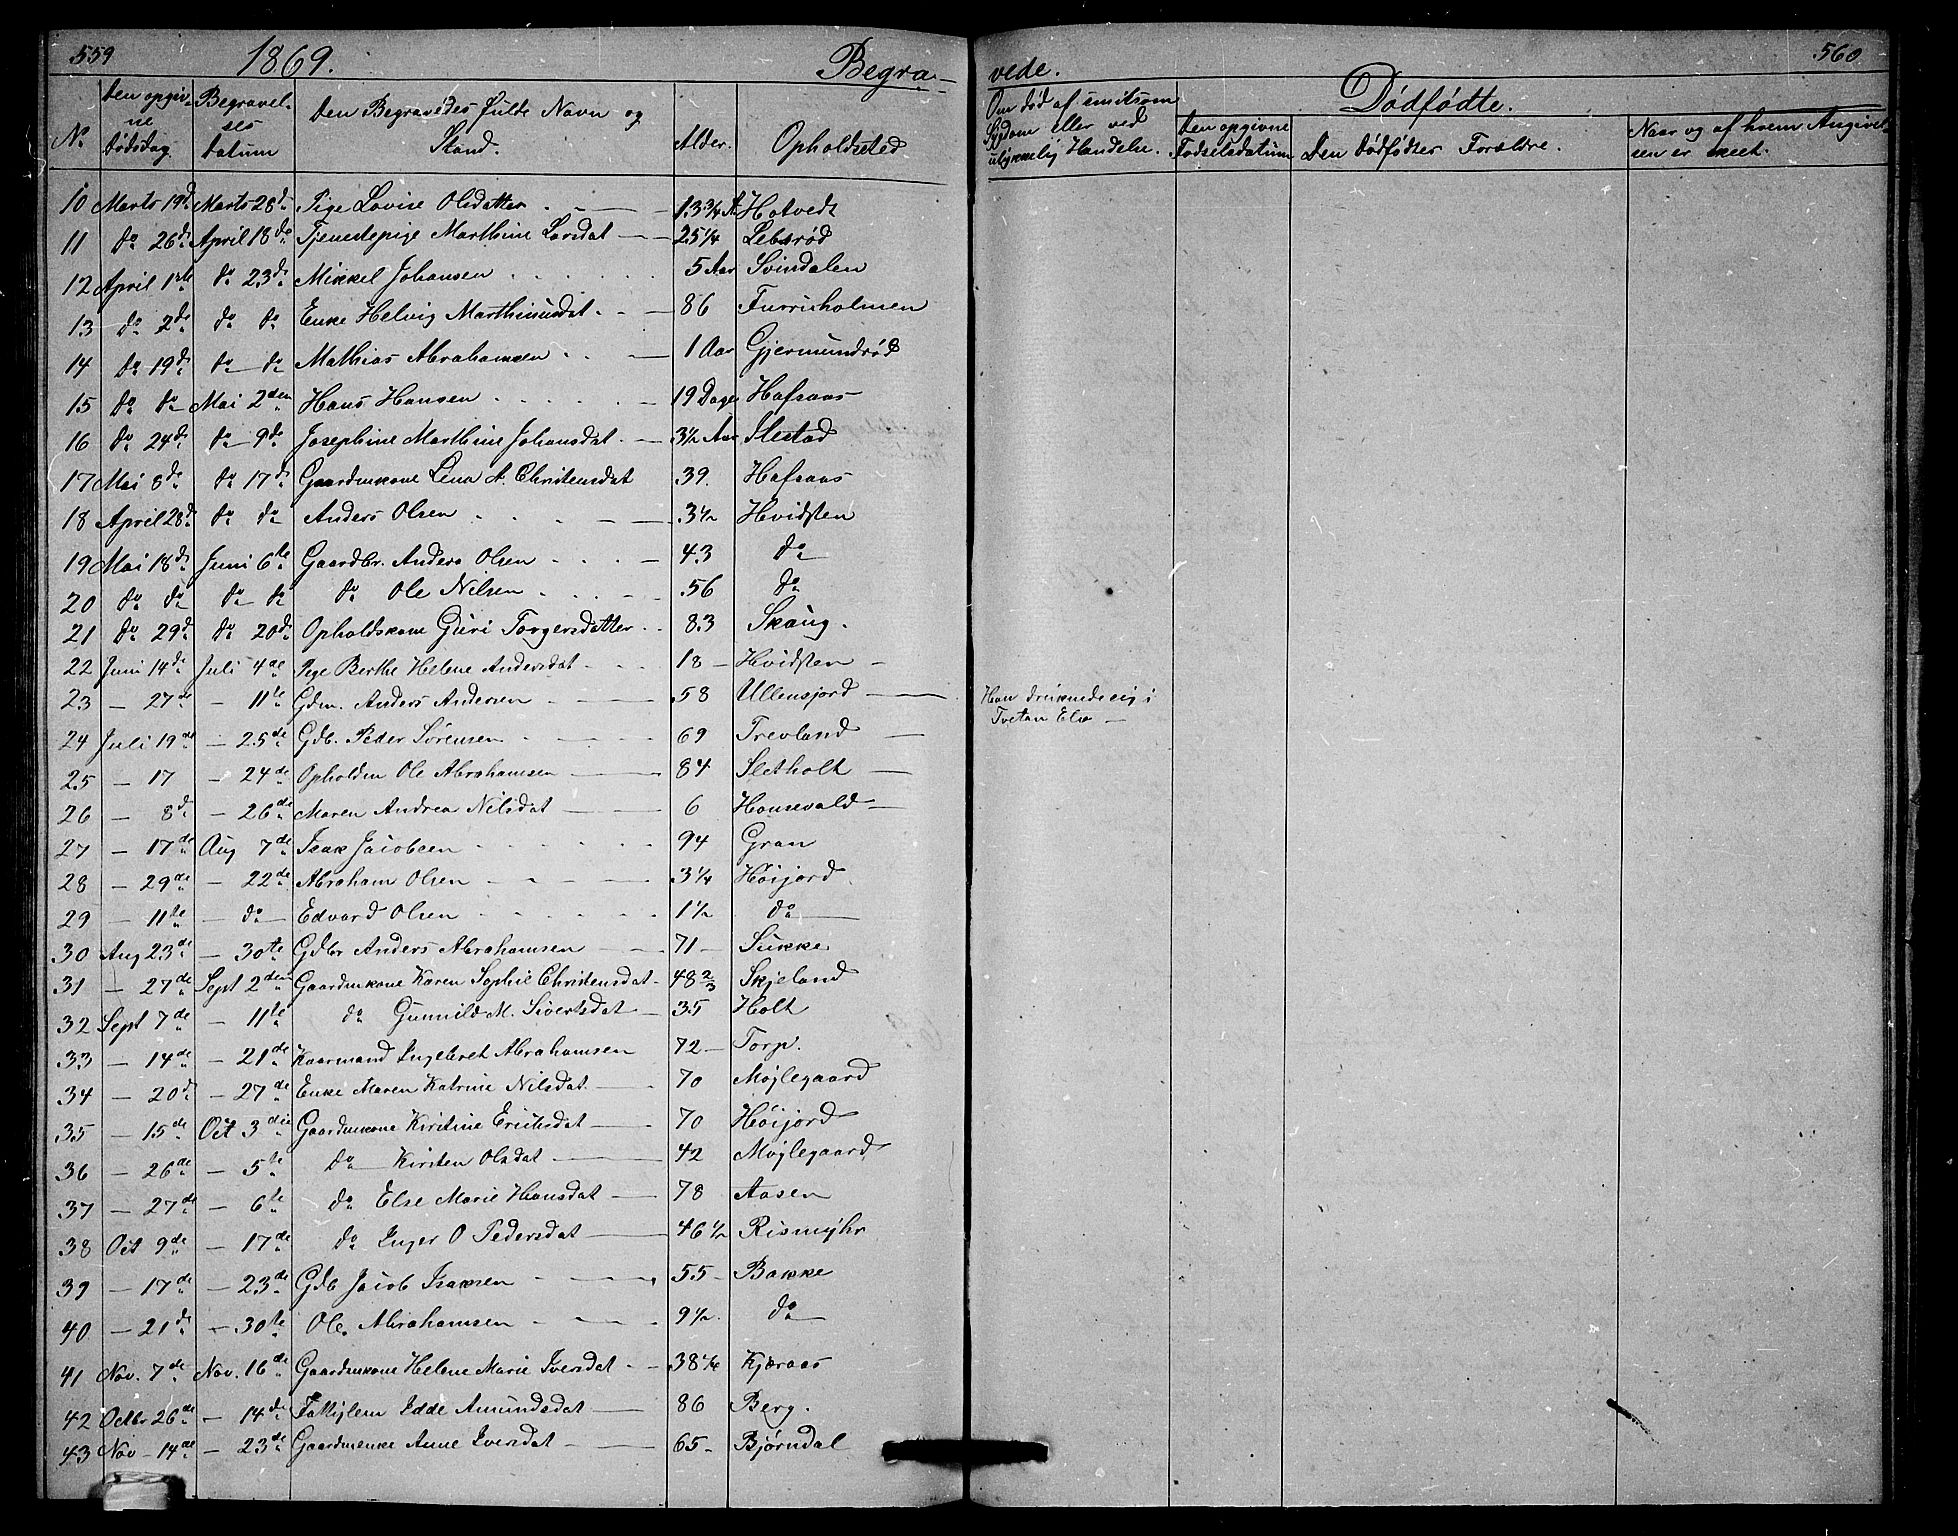 559 1869. Begra-
vede. 560
Dødfødte.
No. Den opgivne Dødsdag. Begravelses Datum Den Begravedes fulde Navn og Stand. Alder. Opholdsted
Om død af smitsom Sygdom eller ved ulykkelig Handelse. Den opgivne Fødselsdatum Den dødfødtes Forældre. Naar og af hvem Angivelsen er skeet.
10 Marts 19de Marts 28de Pige Lovise Olsdatter 13 3/4 A Hotvedt
11 do 26de April 18de Tjenestepige Marthine Larsdat 25 1/4 Lebsrød
12 April 1ste do 23de Mikkel Johansen 5 Aar Svindalen
13 do 2de do do Enke Helvig Marthinusdat 86 Furruholmen
14 do 19de do do Mathias Abrahamsen 1 Aar Gjermundrød
15 do do Mai 2den Hans Hansen 19 Dage Hafsaas
16 do 24de do 9de Josephine Marthine Johansdat 3 1/2 Aar Slestad
17 Mai 8de do 17de Gaardmkone Lena A. Christensdat 39. Hafsaas
18 April 28de do do Anders Olsen 3 1/2 Hvidsten
19 Mai 18de Juni 6te Gaardbr. Anders Olsen 43 do
20 do do do do do Ole Nilsen 56 do
21 do 29de do 20de Opholdskone Guri Torgersdatter 83 Skaug.
22 Juni 14de Juli 4de Pige Berthe Helene Andersdat 18 Hvidsten
23 - 27de - 11te Gdm. Anders Andersen 58 Ullensjord Han druknede sig i
Tvetan Elv
24 Juli 19de - 25de Gdb. Peder Sørensen 69 Trevland
25 - 17 - 24de Opholdm Ole Abrahamsen 84 Sletholt
26 - 8de - 26de Maren Andrea Nilsdat 6 Honsevald
27 - 17de Aug 7de Isak Jacobsen 94 Gran
28 - 29de - 22de Abraham Olsen 3 1/4 Høijord
29 - 11te - do Edvard Olsen 1 1/2 do
30 Aug 23de - 30te Gdbr Anders Abrahamsen 71 Sukke
31 - 27de Sept 2den Gaardmkone Karen Sophie Christensdat 48 2/3 Skjeland
32 Sept 7de - 11te do Gunnild M. Sivertsdat 35 Holt
33 - 14de - 21de Kaarmand Ingebret Abrahamsen 72 Torp.
34 - 20de - 27de Enke Maren Katrine Nilsdat 70 Møjlegaard
35 - 15de Oct 3die Gaardmkone Kirstine Eriksdat 70 Høijord
36 - 26de - 5te do Kirsten Olsdat 42 Møjlegaard
37 - 27de - 6te do Else Marie Hansdat 78 Aasen
38 Oct 9de - 17de do Inger O Pedersdat 46 1/2 Rismyhr
39 - 17de - 23de Gdb Jacob Isaksen 55 Bakke
40 - 21de - 30te Ole Abrahamsen 9 1/2 do
41 Nov. 7de Nov. 16de Gaardmkone Helene Marie Iversdat 38 1/4 Kjæraas
42 Octbr 26de - 14de Fattiglem Edde Amundsdat 86 Berg.
43 Nov - 14de - 23de Gaardmenke Anne Iversdat 65 Bjørndal